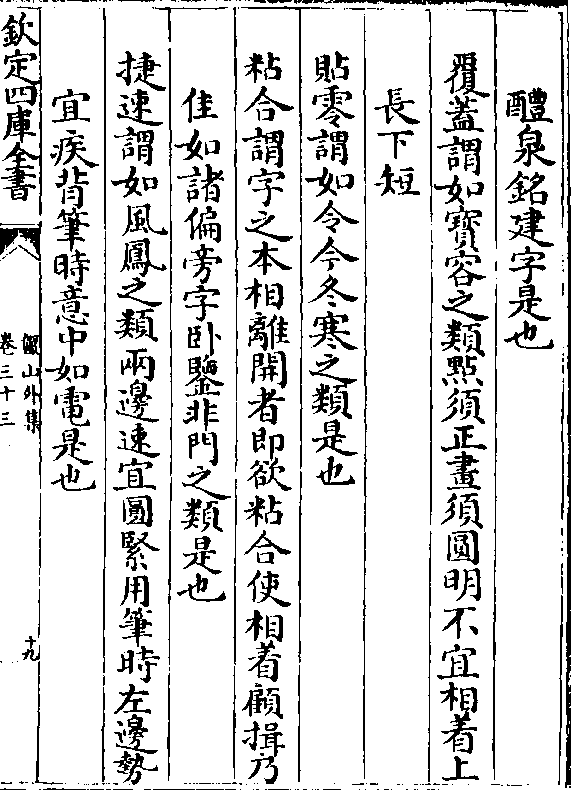 醴泉銘建字是也
覆蓋謂如寳容之類點須正畫須圓明不宜相着上
長下短
貼零謂如令今冬寒之類是也
粘合謂字之本相離開者即欲粘合使相着顧揖乃
佳如諸偏旁字卧鑒非門之類是也
捷速謂如風鳳之類兩邊速宜圓緊用筆時左邊勢
宜疾背筆時意中如電是也
欽定四庫全書
儼山外集
卷三十三
十九